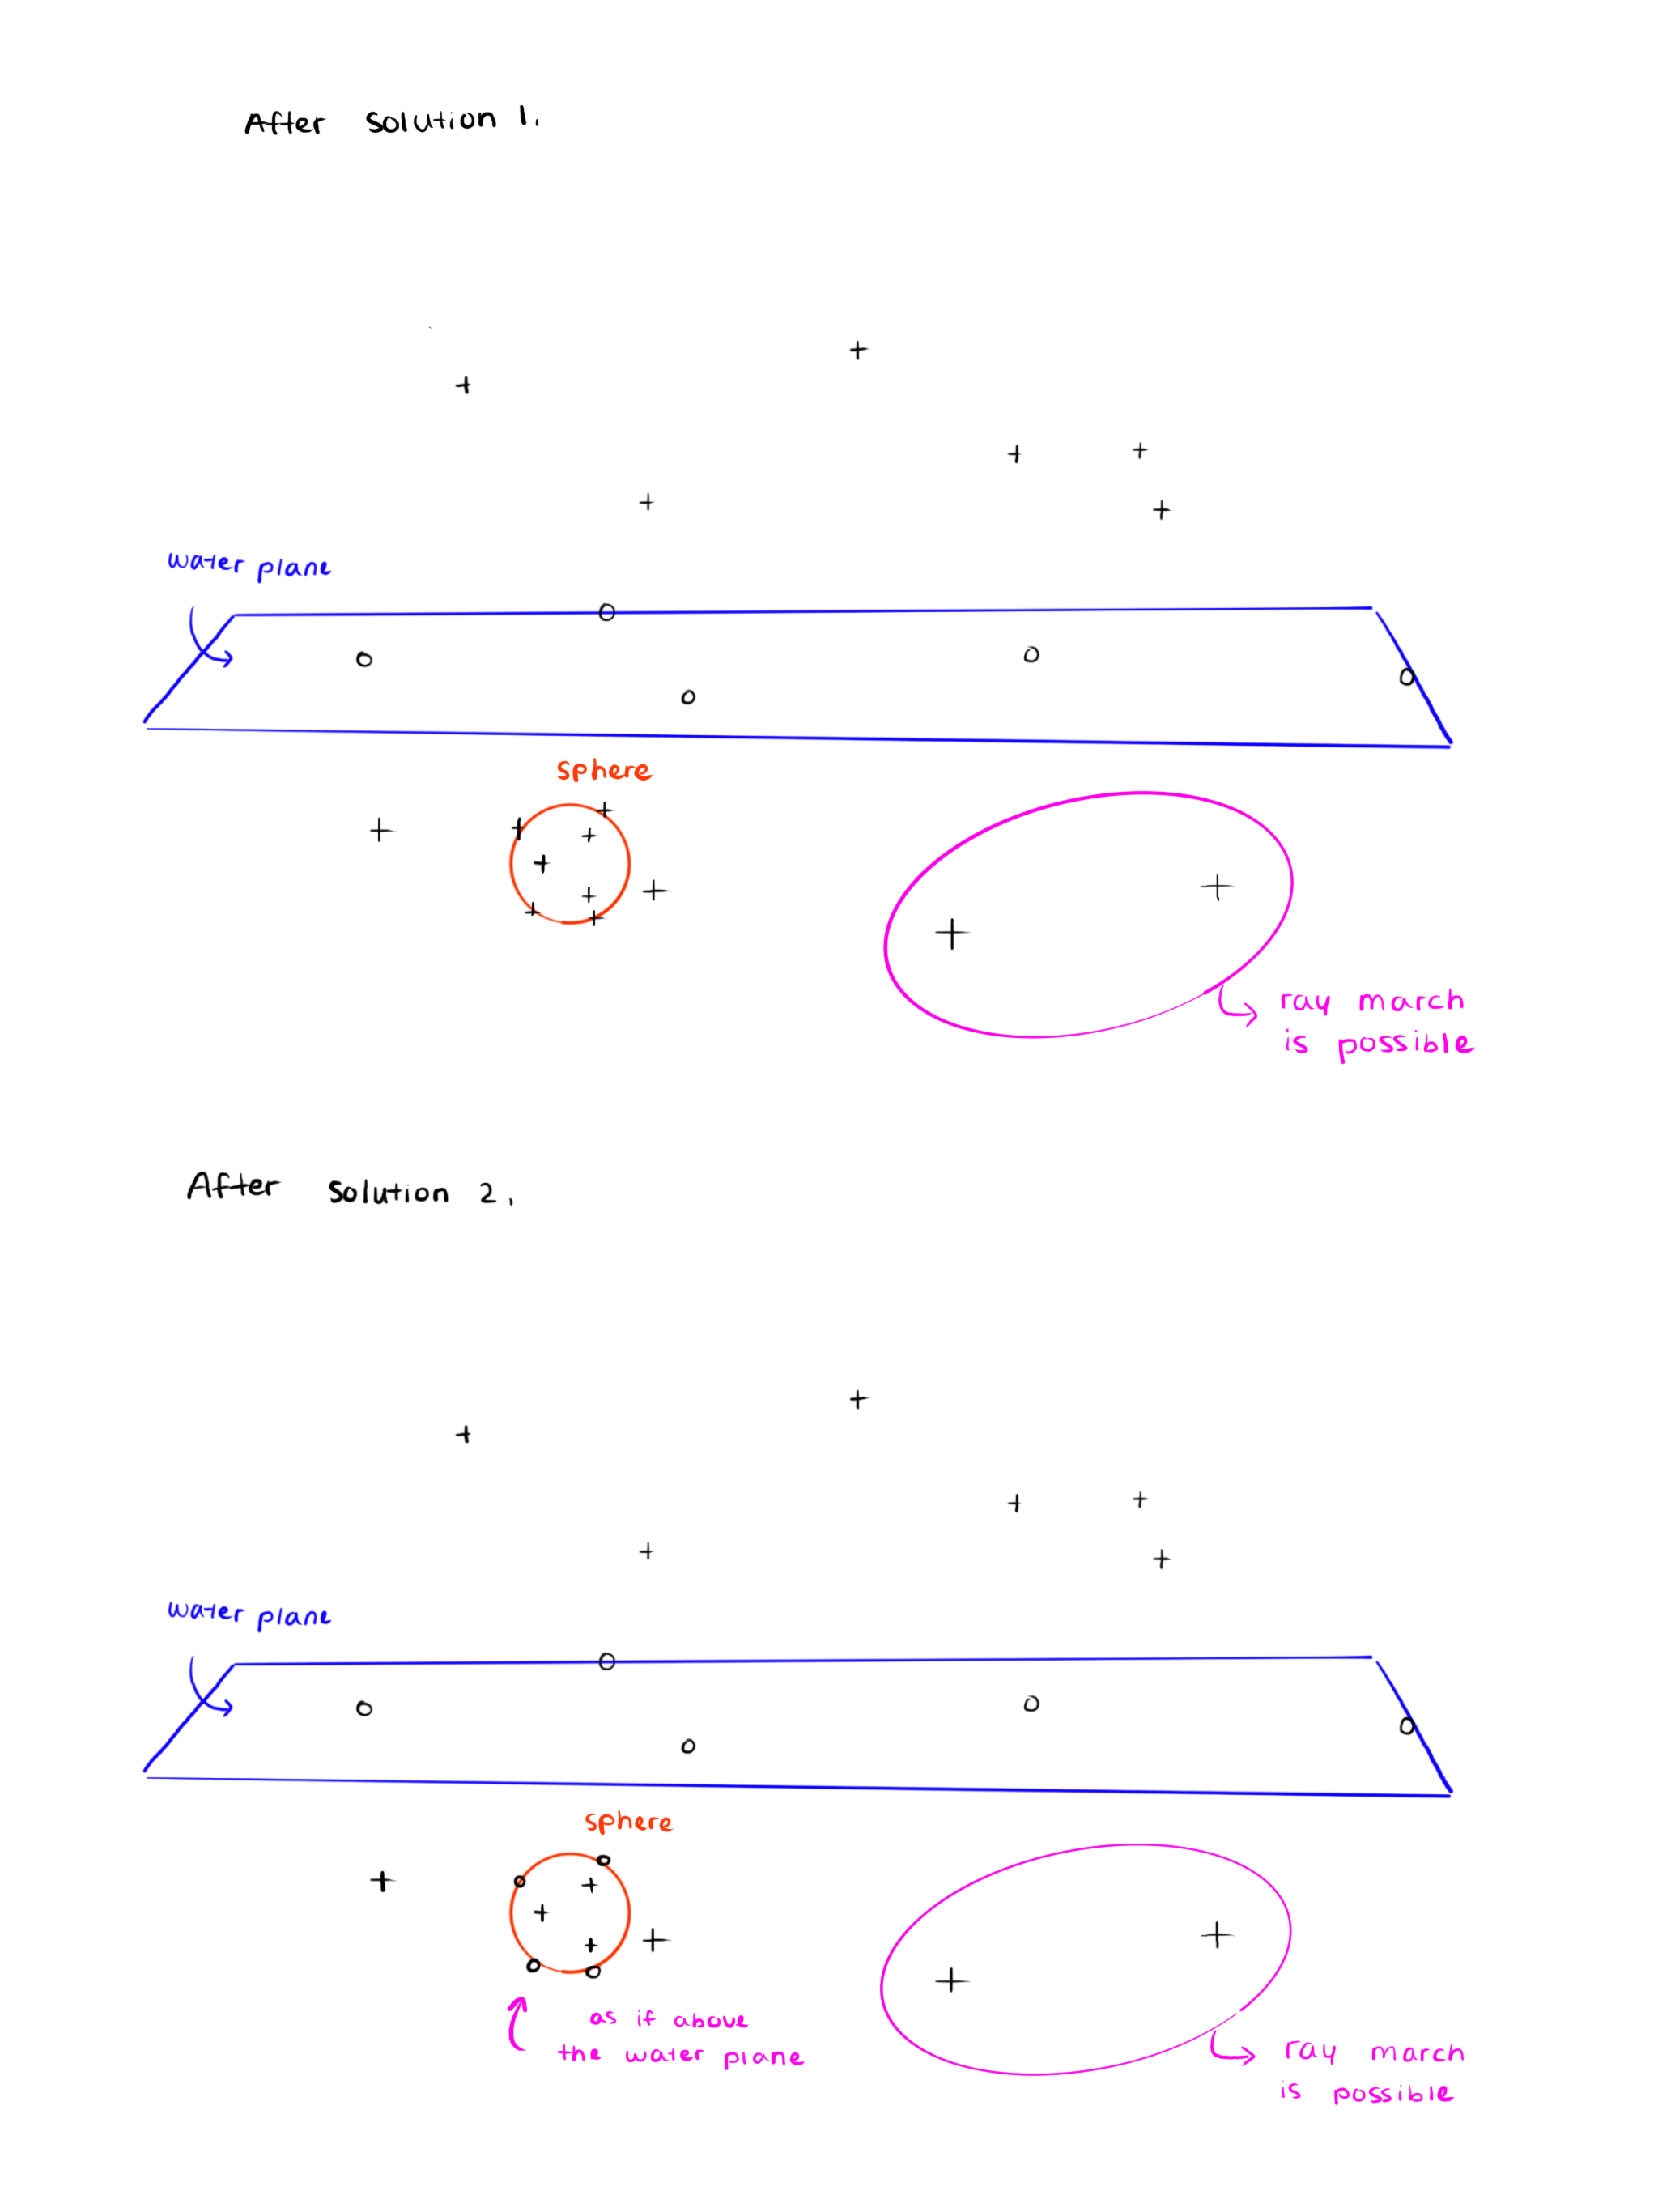 After solution 1.
water plane
sphere
ray march
is possible
After solution 2.
water plane
sphere
as if above
the water plane
ray march
is possible